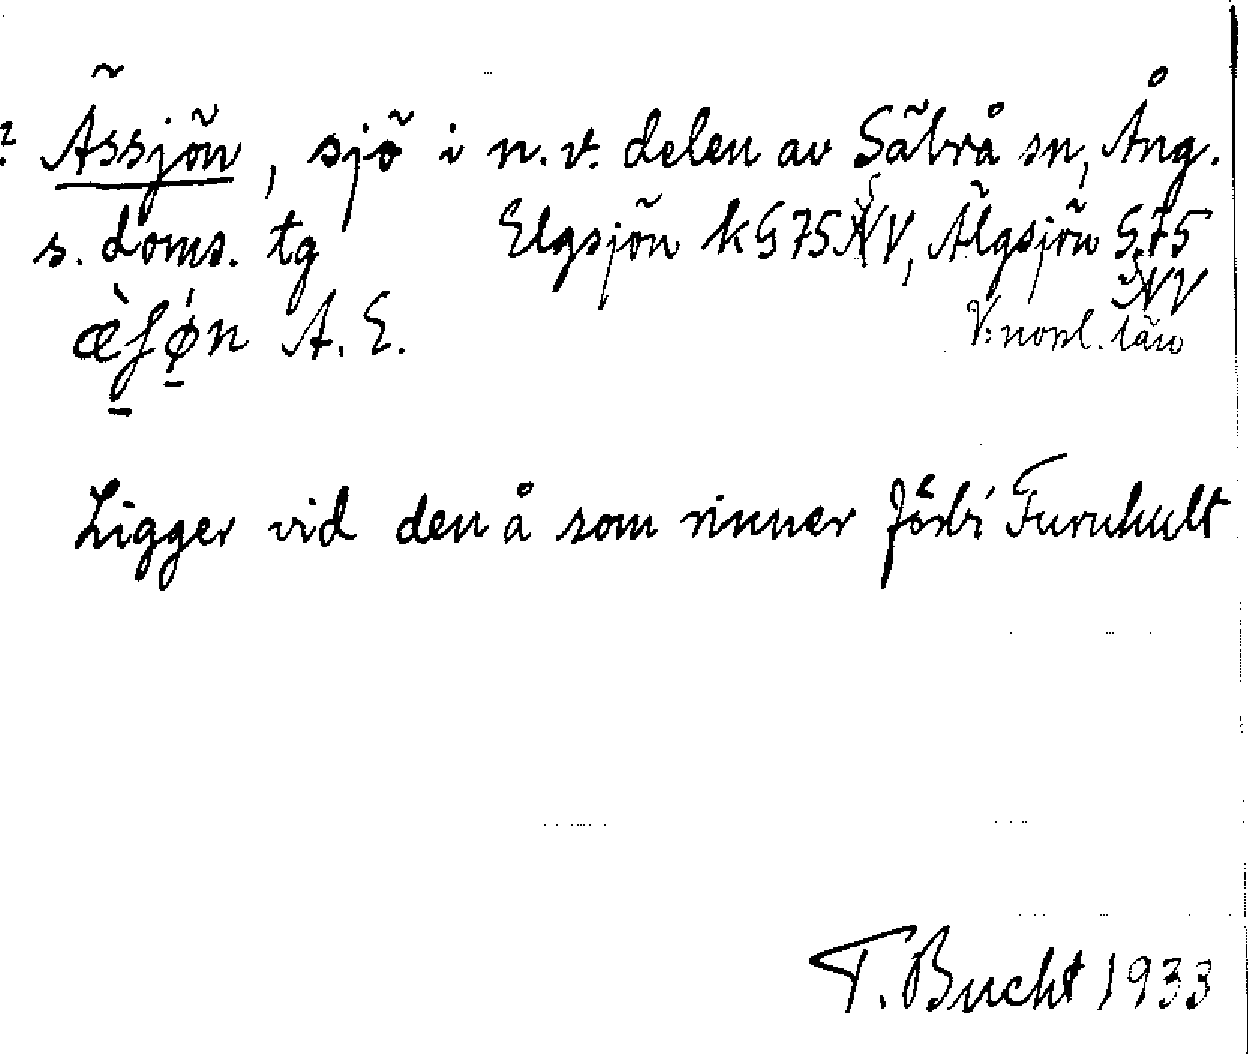 Ässjön, sjö i n.v. delen av Säbrå sn, Ång.
s. doms. tg Elgsjön k G 75 NV, Älgsjön G. 75
NV
æ̀ʃǿn A. E. V: norrl. län
Ligger vid den å som rinner förbi Furuhult
T. Bucht 1933